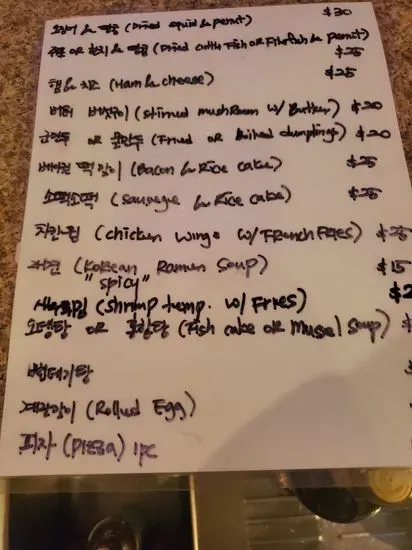 오징어 & 땅콩 (Dried squid & penut) $30
쥐포 or 한치 & 땅콩 (Dried cuttle Fish OR Filefish & penut) $25
햄 & 치즈 (Ham & cheese) $25
버터 버섯구이 (stirred mushRoom w/ Butter) $20
군만두 or 물만두 (Fried or Boiled dumplings) $20
베이컨 떡말이 (Bacon & Rice cake) $25
소떡소떡 (sausage & Rice cake) $25
치킨윙 (chicken wings w/ FRench FRies) $25
라면 (Korean Ramun Soup) $15
"spicy"
새우튀김 (shrimp temp. w/ Fries) $2
오뎅탕 or 홍합탕 (Fish cake OR Mussel Soup) $
번데기탕
계란말이 (Rolled Egg)
피자 (pizza) 1pc